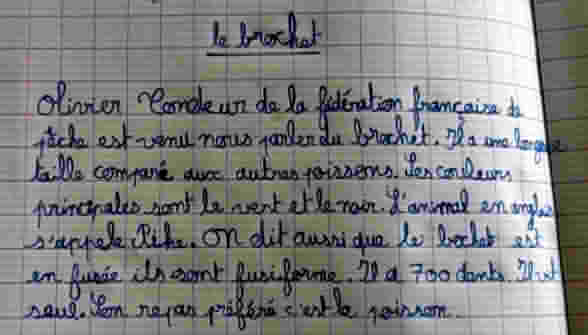 le brochet
Olivier de la fédération française de
pêche est venu nous parler du brochet. Il a une longue
taille comparé aux autres poissons. Les couleurs
principales sont le vert et le noir. L'animal en anglais
s'appele Pike. On dit aussi que le brochet est
en fusée ils sont fusiforme. Il a 700 dents. Il vit
seul. Son repas préféré c'est le poisson.